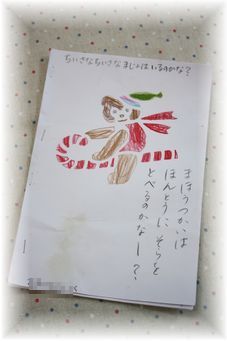 ちいさなちいさなまじょはいるのかな?
まほうつかいは
ほんとうに そらを
とべるのかなー?